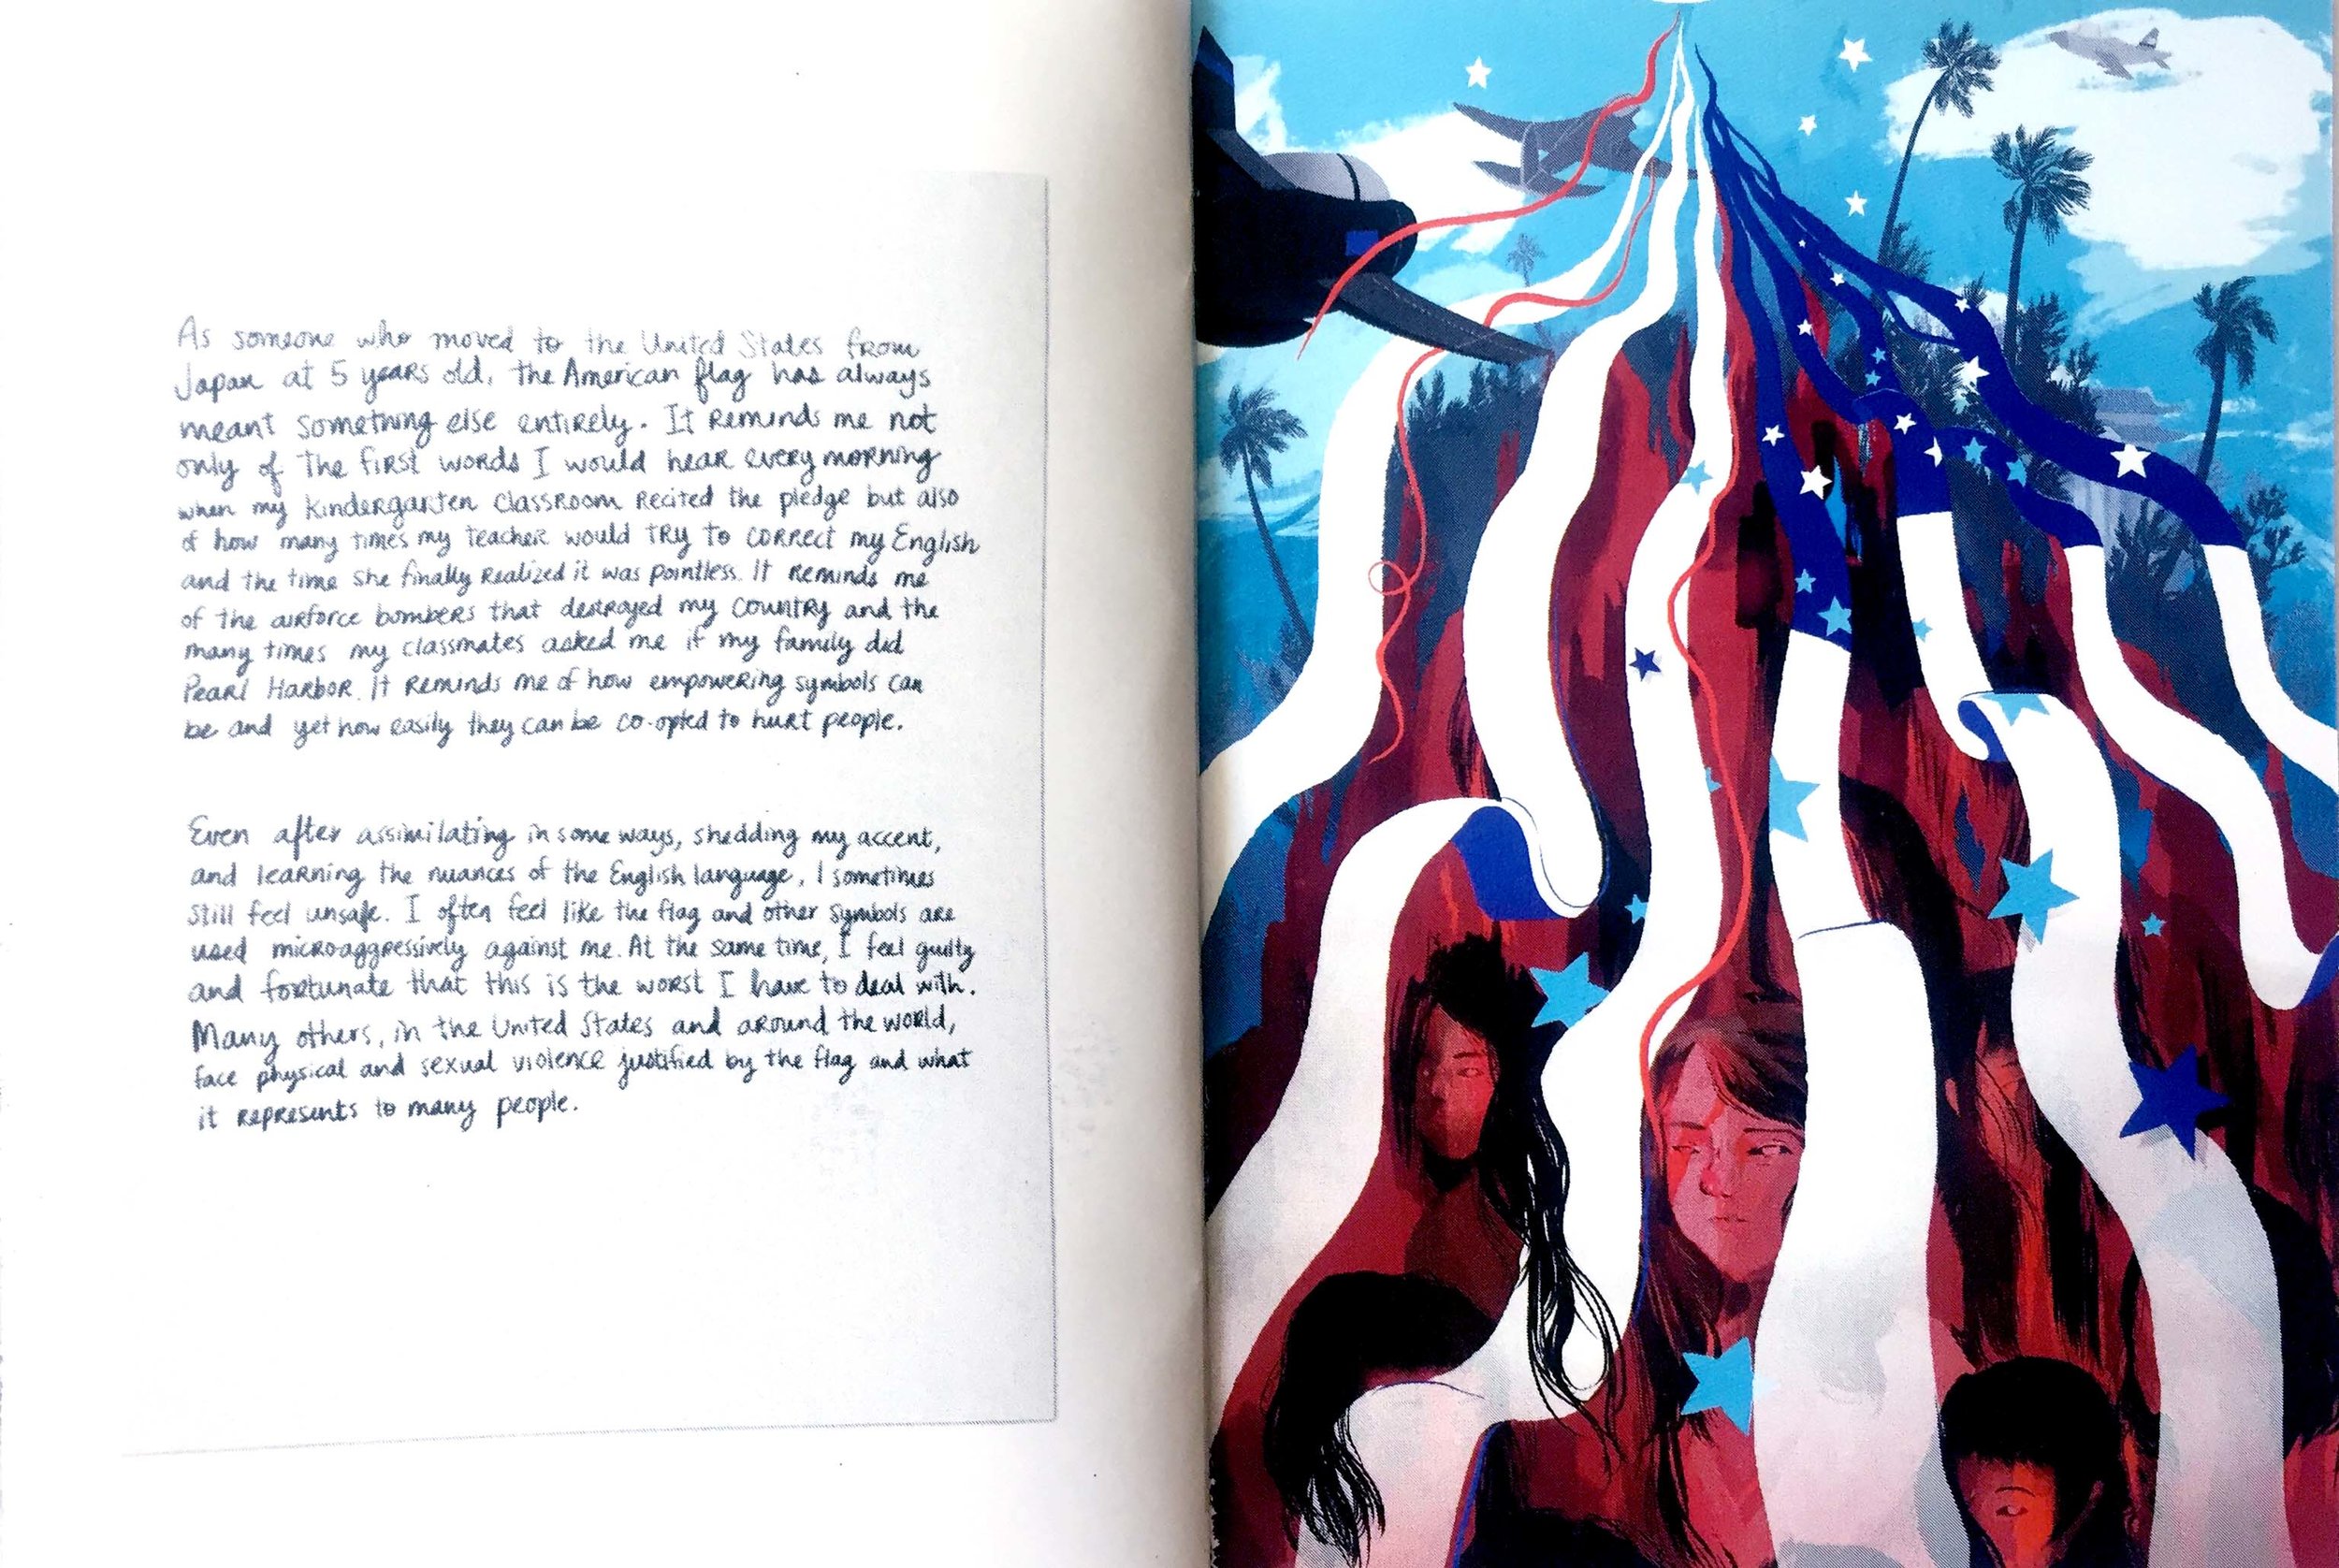 As someone who moved to the United States from
Japan at 5 years old, the American flag has always
meant something else entirely. It reminds me not
only of the first words I would hear every morning
when my kindergarten classroom recited the pledge but also
of how many times my teacher would try to correct my English
and the time she finally realized it was pointless. It reminds me
of the airforce bombers that destroyed my country and the
many times my classmates asked me if my family did
Pearl Harbor. It reminds me of how empowering symbols can
be and yet how easily they can be co-opted to hurt people.
Even after assimilating in some ways, shedding my accent,
and learning the nuances of the English language, I sometimes
still feel unsafe. I often feel like the flag and other symbols are
used microaggressively against me. At the same time, I feel guilty
and fortunate that this is the worst I have to deal with.
Many others, in the United States and around the world,
face physical and sexual violence justified by the flag and what
it represents to many people.